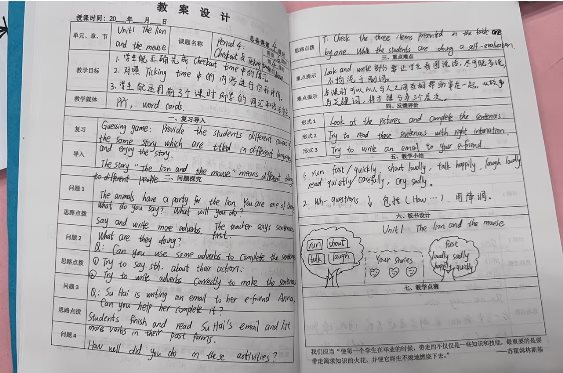 教案设计
授课时间：20 年 月 日
单元、章、节
Unit1 The lion
and the mouse
课题名称
Period 4
Checkout & Ticking
教学目标
1. 学生能正确完成 Checkout time
2. 对照 Ticking time 中的内容进行
3. 学生能运用前3个课时所学的
教学媒体
PPT, word cards.
一、复习导入
复习
Guessing game: Provide the students different
the same story which are titled in different
导入
and enjoy the story.
The story "The lion and the mouse" means different
to different people
二、问题探究
问题1
The animals have a party for the lion. You are one of
What do you say? What will you do?
思路点拨
Say and write more adverbs. The teacher says sentences
first.
问题2
What are they doing?
Q: Can you use some adverbs to complete the sentences
思路点拨
① Try to say sth. about their actions.
② Try to write adverbs correctly to make the sentences
问题3
Q: Su Hai is writing an email to her e-friend Anna.
Can you help her complete it?
思路点拨
Students finish and read Su Hai's email and list
more verbs in their past forms.
问题4
How well did you do in these activities?
思路点拨
T: Check the three items presented in the task one
by one while the students are doing a self-evaluation.
三、重点难点
重点提示
Look and write
难点提示
四、反馈评价
形式1
Look at the pictures and complete the sentences.
形式2
Try to read these sentences with right intonation.
形式3
Try to write an email to your e-friend.
五、教学小结
1. run fast / quickly, shout loudly, talk happily, laugh loudly
read quietly / carefully, cry sadly.
2. Wh-questions ↓ 包括 (How …) 用降调.
六、板书设计
Unit 1 The lion and the mouse
run shout
talk laugh
Your stories
fast
loudly sadly
happily quickly
七、教学点睛
我们应当“使每一个学生在毕业的时候，带走的不仅仅是一些知识和技能，最重要的是要
带走渴求知识的火花，并使它终生不熄地燃烧下去。”
——苏霍姆林斯基